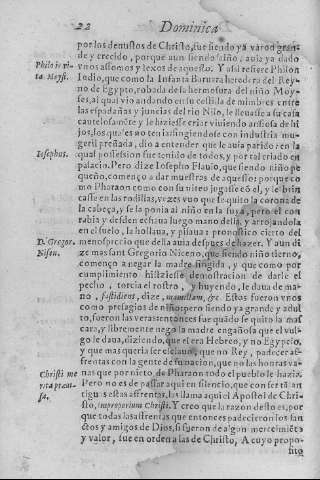 22 Dominica
por los denustos de Christo, fue siendo ya varon gran-
de y crecido, porque aun siendo niño, auia ya dado
vnos assomos y lexos de aquesto. Y assi refiere Philon
Philo in vi-
ta Moysi.
Iudio, que como la Infanta heredera del Rey-
no de Egypto, robada de la hermosura del niño Moy-
ses, al qual vio andando en su cestilla de mimbres entre
las espadañas y juncias del rio Nilo, le lleuasse a su casa
cautelosamẽte y le hiziesse criar viniendo ansiosa de hi
jos, los quales no tenia singiendose con industria mu-
geril preñada, dio a entender que le auia parido: en la
Iosephus.
qual possession fue tenido de todos, y por tal criado en
palacio. Pero dize Iosepho Flauio, que siendo niño pe
queño, començo a dar muestras de aquesto: porque co
mo Pharaon como con su nieto jogasse cõ el, y le brin
casse en las rodillas, vezes vuo que le quito la corona de
la cabeça, y se la ponia al niño en la suya, pero el con
rabia y desden echaua luego mano della, y arrojandola
en el suelo, la hollaua, y pisaua: pronostico cierto del
D. Gregor.
Nissen.
menosprecio que della auia despues de hazer. Y aun di
ze mas sant Gregorio Niceno, que siendo niño tierno,
començo a negar la madre fingida, y que como por
cumplimiento hiziesse demostracion de darle el
pecho, torcia el rostro, y huyendo, le daua de ma-
no, fastidiens, dize, mamillam, &c. Estos fueron vnos
como presagios de niño: pero siendo ya grande y adul
to, fueron las veras entonces fue quãdo se quito la mas
cara, y libremente nego la madre engañosa que el vul-
go le daua, diziendo, que el era Hebreo, y no Egypcio,
y que mas queria ser esclauo, que no Rey, padecer as-
frentas con la gente de su nacion, que no las honras va-
nas que por nieto de Pharaon todo el pueblo le hazia.
Christi me
Pero no es de passar aqui en silencio, que con ser tã an
tiguas estas affrentas, las llama aqui el Apostol de Chri-
sto, improperium Christi. Y creo que la razon desto es, por
que todas las affrentas que entonces padecieron los san
ctos y amigos de Dios, si fueron de algun merecimiẽto
y valor, fue en orden a las de Christo, A cuyo propo-
sito